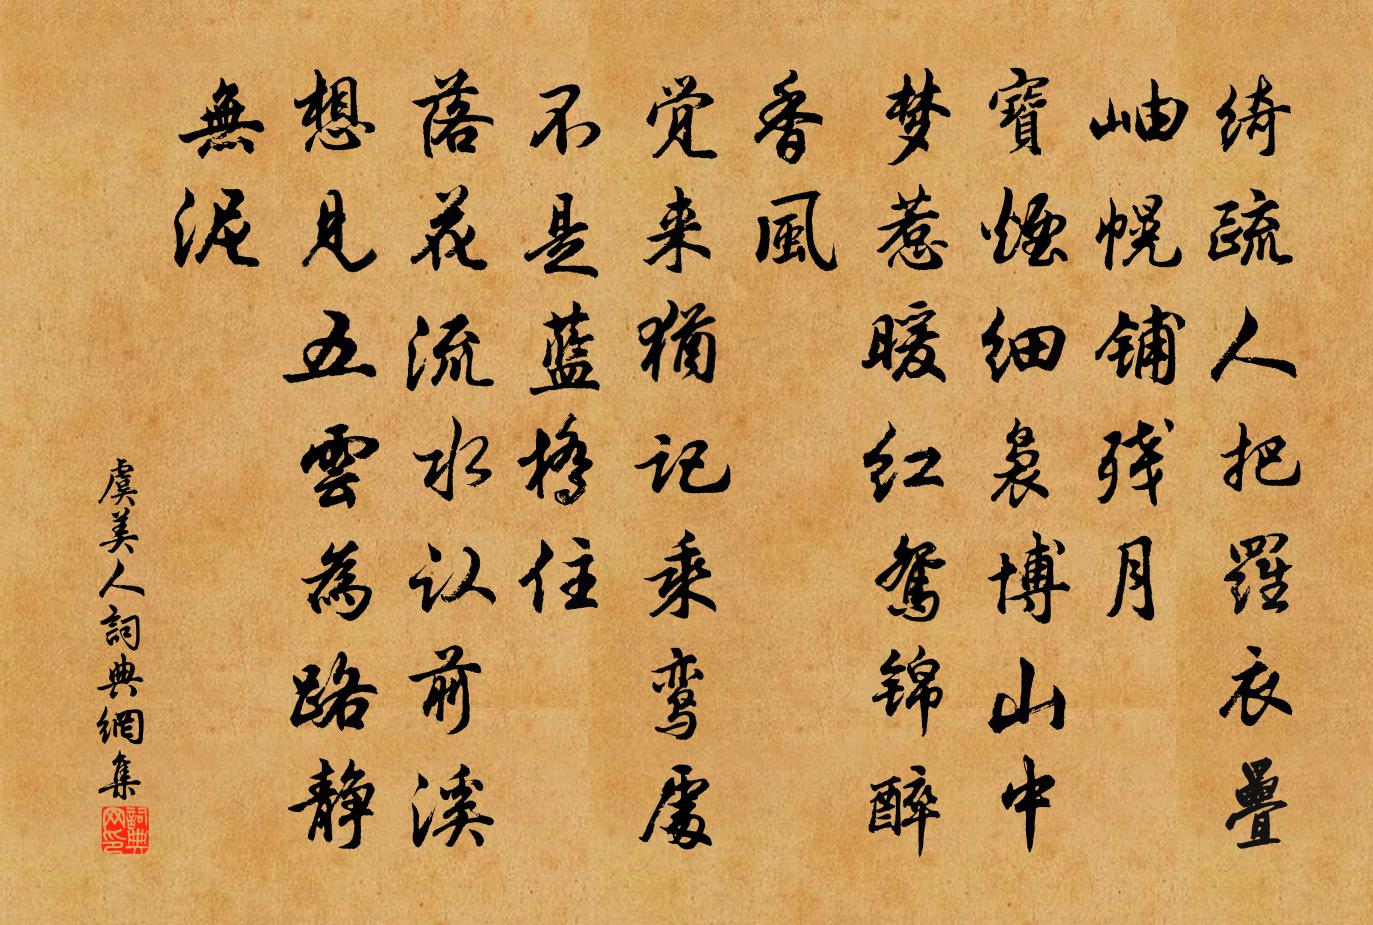 绮疏人把羅衣疊
岫幌铺残月
寶煙细袅博山中
梦惹暖红鸳锦醉
香風
觉来猶记乘鸾處
不是藍橋住
落花流水认前溪
想見五雲為路静
無泥
虞美人詞典網集
詞典网印